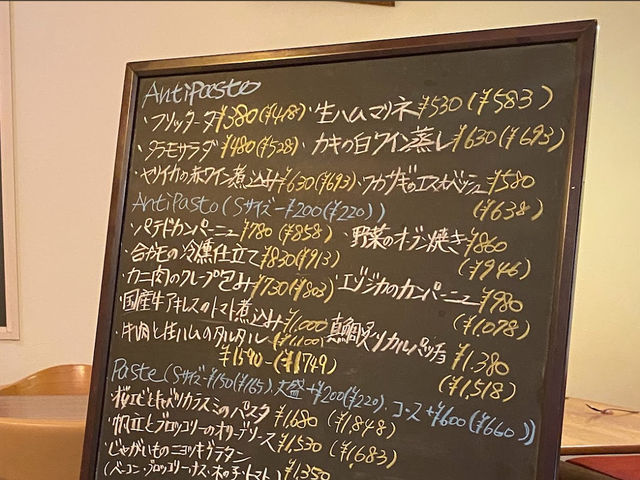 AntiPasto
・フリッタータ¥380(¥418)・生ハムマリネ¥530(¥583)
・タラモサラダ¥480(¥528)・カキの白ワイン蒸し¥630(¥693)
・ヤリイカの赤ワイン煮込み¥630(¥693)・ワカサギのエスカベッシュ¥580
(¥638)
AntiPasto(Sサイズ-¥200(¥220))
・パテドカンパーニュ¥780(¥858)・野菜のオーブン焼き¥860
(¥946)
・合がモの冷燻仕立て¥830(¥913)
・カニ肉のクレープ包み¥730(¥803)・エゾジカのカンパーニュ¥980
(¥1078)
・国産牛アキレスのトマト煮込み¥1,000
(¥1,100)
・真鯛炙りカルパッチョ¥1,380
(¥1,518)
・牛肉と生ハムのタルタル
¥1590-(¥1749)
Paste(Sサイズ-¥150(¥165)、大盛+¥200(¥220)・コース+¥600(¥660))
・桜エビとキャベツカラスミのパスタ¥1,680(¥1,848)
・帆立とブロッコリーのオーロラソース¥1,530(¥1,683)
・じゃがいものニョッキグラタン
(ベーコン・ブロッコリー・ナス・木の子・トマト)¥1,350